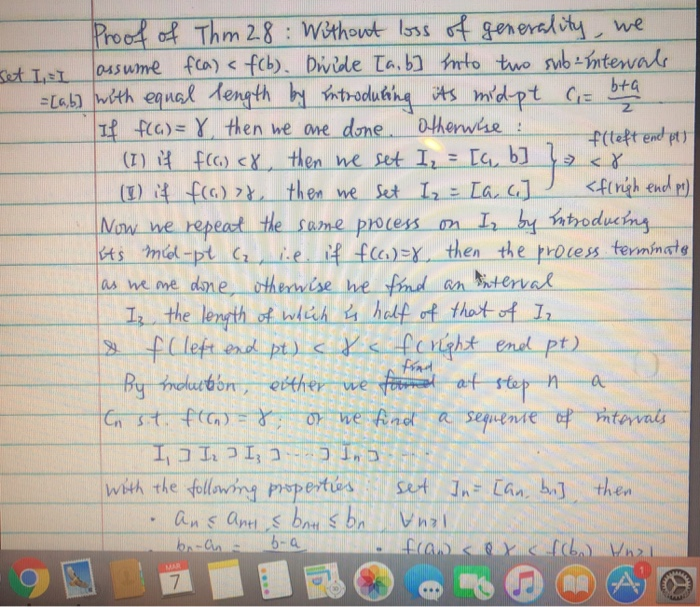 Proof of Thm 2.8 : Without loss of generality, we
Set I₁=I
assume f(a) < f(b). Divide [a.b] into two sub-intervals
=[a,b]
with equal length by introducing its mid-pt C₁ = b+a/2
If f(c₁) = γ, then we are done. Otherwise :
(I) if f(c₁) < γ, then we set I₂ = [c₁, b]
(II) if f(c₁) > γ, then we set I₂ = [a, c₁]
} ⇒ f(left end pt)
< γ
< f(righ end pt)
Now we repeat the same process on I₂ by introducing
its mid-pt C₂, i.e. if f(c₂)=γ, then the process terminates
as we are done, otherwise we find an interval
I₃, the length of which is half of that of I₂
& f(left end pt) < γ < f(right end pt)
By induction, either we find at step n a
Cn s.t. f(Cn) = γ; or we find a sequence of intervals
I₁ ⊃ I₂ ⊃ I₃ ⊃ ---- ⊃ In ⊃ ----
with the following properties set In = [an, bn], then
· an ≤ an+1 ≤ bn+1 ≤ bn ∀n≥1
bn-an = b-a · f(an) < γ < f(bn) ∀n≥1
MAR
7
1